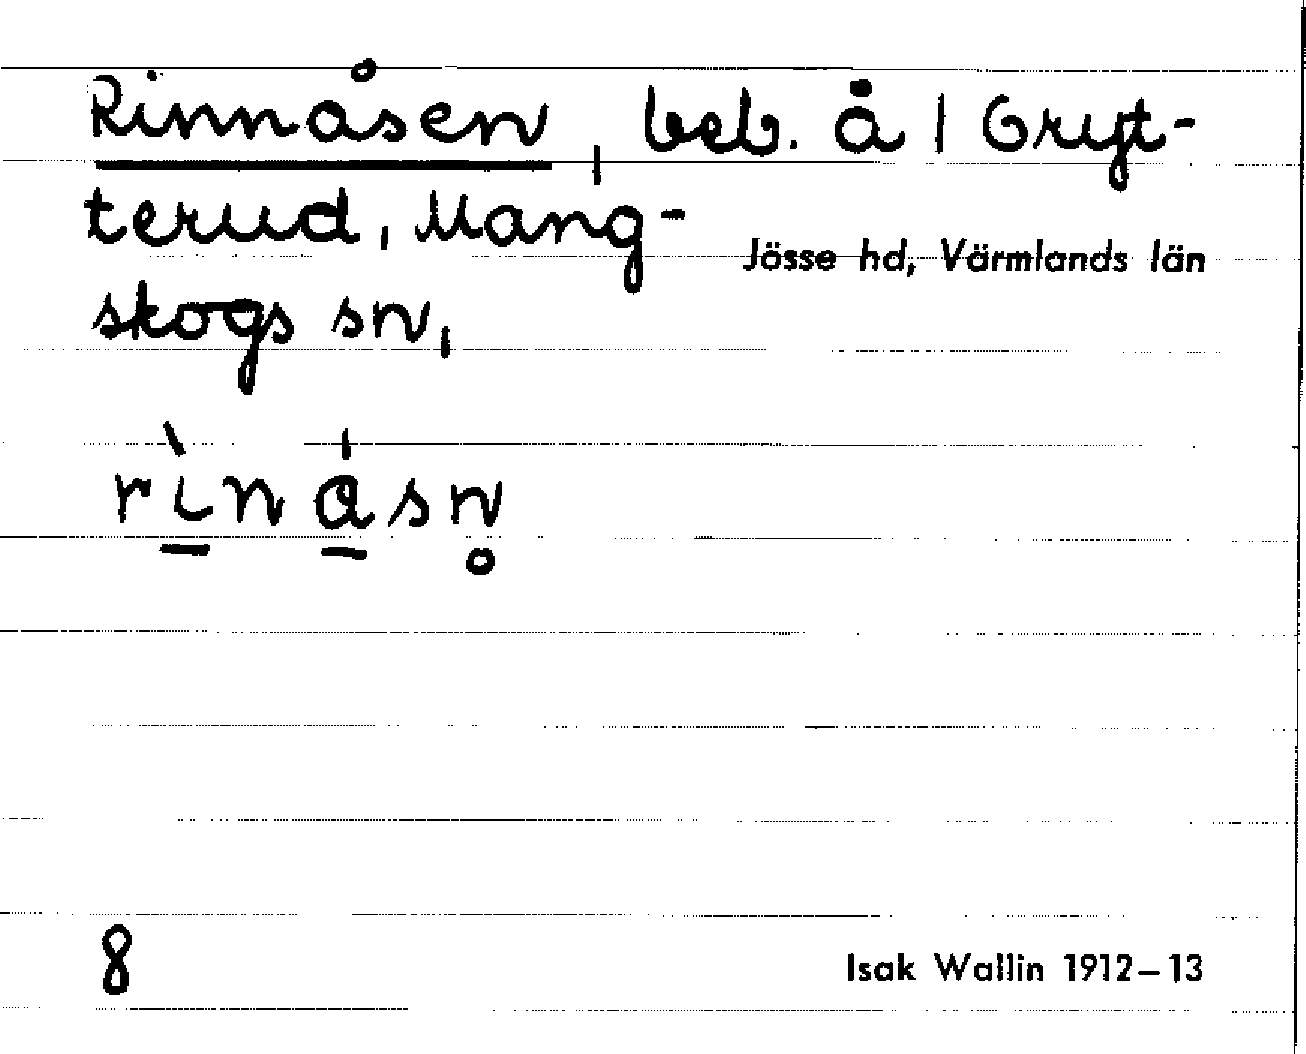 Rinnåsen, beb. å 1 Gryt-
terud, Mang-
Jösse hd, Värmlands län
skogs sn,
rìnåsn
8
Isak Wallin 1912–13